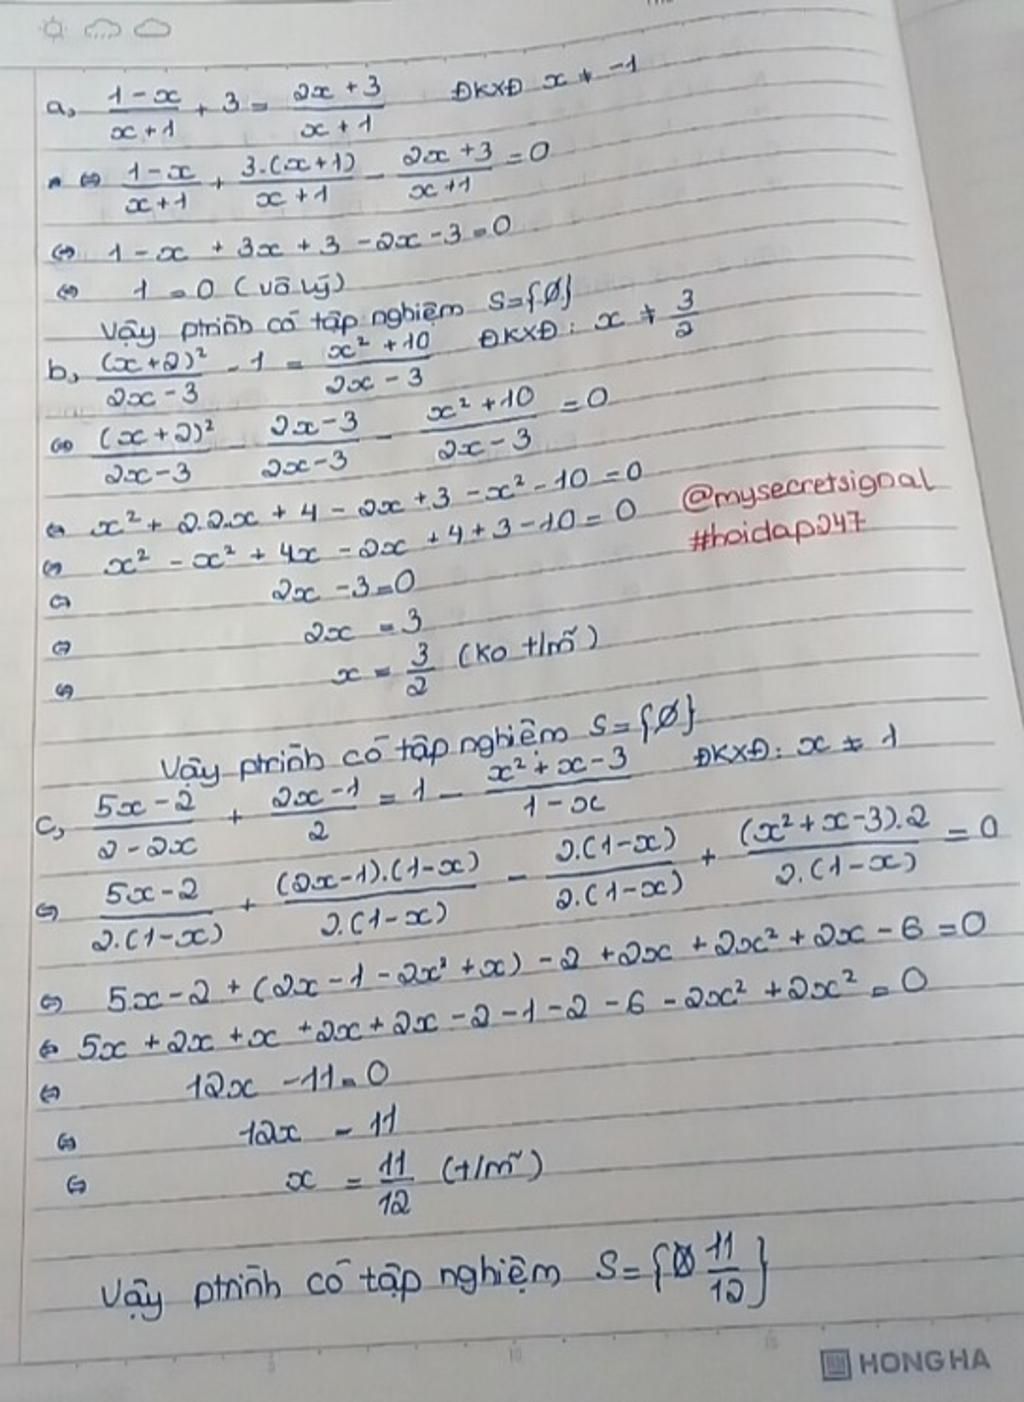 a, (1-x)/(x+1) + 3 = (2x+3)/(x+1) ĐKXĐ x ≠ -1
⇔ (1-x)/(x+1) + (3.(x+1))/(x+1) - (2x+3)/(x+1) = 0
⇔ 1-x + 3x + 3 - 2x - 3 = 0
⇔ 1 = 0 (vô lý)
Vậy ptrình có tập nghiệm S={∅}
b, (x+2)²/(2x-3) - 1 = (x²+10)/(2x-3) ĐKXĐ: x ≠ 3/2
⇔ (x+2)²/(2x-3) - (2x-3)/(2x-3) - (x²+10)/(2x-3) = 0
⇔ x² + 2.2.x + 4 - 2x + 3 - x² - 10 = 0
⇔ x² - x² + 4x - 2x + 4 + 3 - 10 = 0
@mysecretsignal
#hoidap247
⇔ 2x - 3 = 0
⇔ 2x = 3
⇔ x = 3/2 (ko t/m~)
Vậy ptrình có tập nghiệm S={∅}
c, (5x-2)/(2-2x) + (2x-1)/2 = 1 - (x²+x-3)/(1-x) ĐKXĐ: x ≠ 1
⇔ (5x-2)/(2.(1-x)) + ((2x-1).(1-x))/(2.(1-x)) - (2.(1-x))/(2.(1-x)) + ((x²+x-3).2)/(2.(1-x)) = 0
⇔ 5x-2 + (2x-1-2x²+x) - 2 + 2x + 2x² + 2x - 6 = 0
⇔ 5x + 2x + x + 2x + 2x - 2 - 1 - 2 - 6 - 2x² + 2x² = 0
⇔ 12x - 11 = 0
⇔ 12x = 11
⇔ x = 11/12 (t/m~)
Vậy ptrình có tập nghiệm S={11/12}
5 10 15
HONG HA